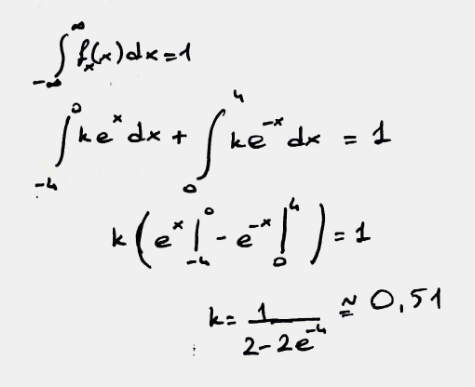 ∫_{-∞}^{∞} f_x(x)dx=1
∫_{-4}^{0} ke^x dx + ∫_{0}^{4} ke^{-x} dx = 1
k(e^x |_{-4}^{0} - e^{-x} |_{0}^{4}) = 1
k = 1/(2-2e^{-4}) ≃ 0,51